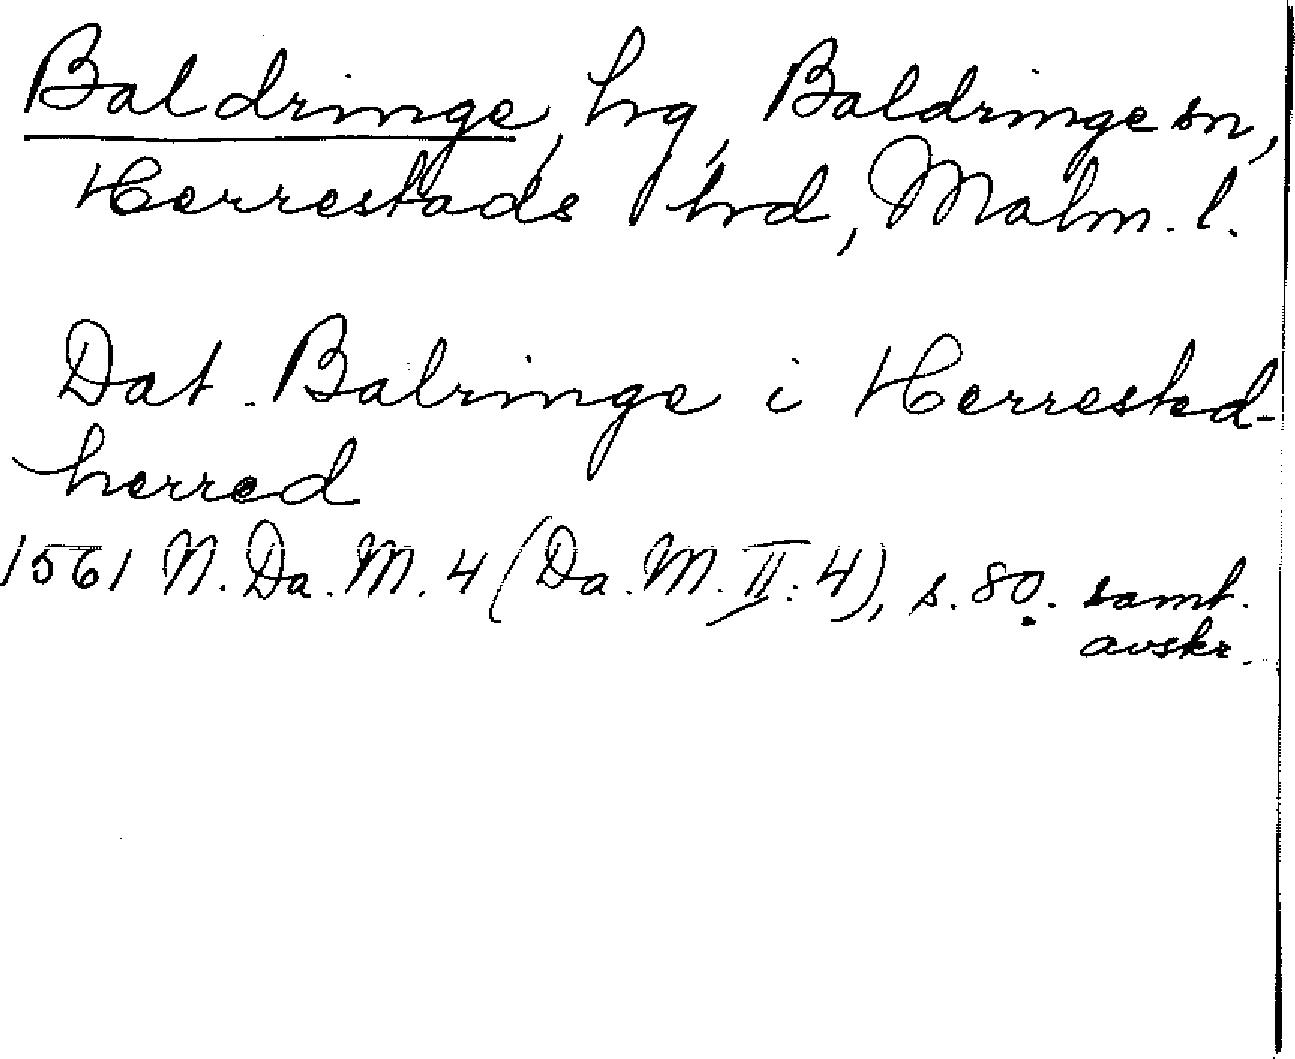 Baldringe, hg, Baldringe sn,
Herrestads hrd, Malm. l.
Dat. Balringe i Herrested-
herred
1561 N. Da. M. 4 (Da. M. II: 4), s. 80. samt.
avskr.